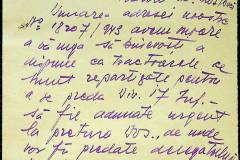 Urmare adresei noastre
No 18207/943 avem onoare
a vă ruga să binevoiți a
dispune ca tractoarele ce
sunt repartizate pentru
a se preda Div. 17 Inf.
să fie adunate urgent
la pretura Vos., de unde
vor fi predate delegatului